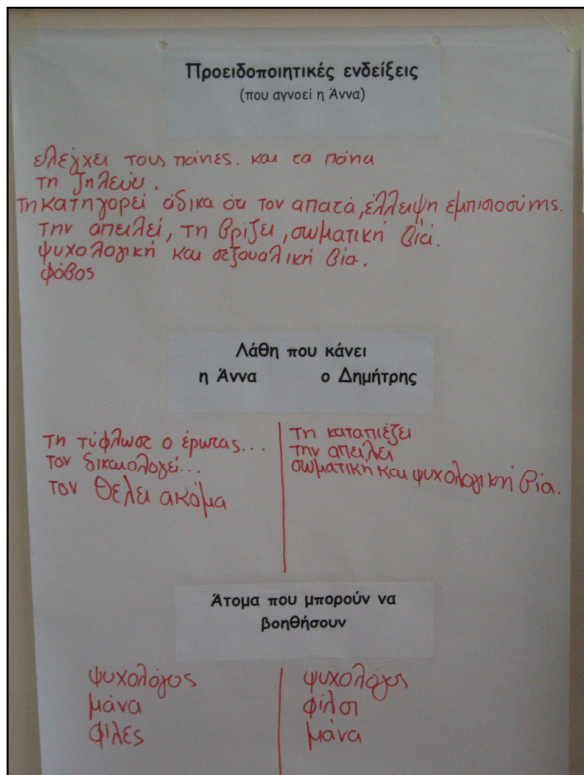 Προειδοποιητικές ενδείξεις
(που αγνοεί η Άννα)
ελέγχει τους πάντες. και τα πάντα
τη ζηλεύει.
τη κατηγορεί άδικα ότι τον απατά, έλλειψη εμπιστοσύνης.
την απειλεί, τη βρίζει, σωματική βία.
ψυχολογική και σεξουαλική βία.
φόβος
Λάθη που κάνει
η Άννα ο Δημήτρης
τη τύφλωσε ο έρωτας...
τον δικαιολογεί...
τον θέλει ακόμα
τη καταπιέζει
την απειλεί
σωματική και ψυχολογική βία.
Άτομα που μπορούν να
βοηθήσουν
ψυχολόγος
μάνα
φίλες
ψυχολόγος
φίλοι
μάνα